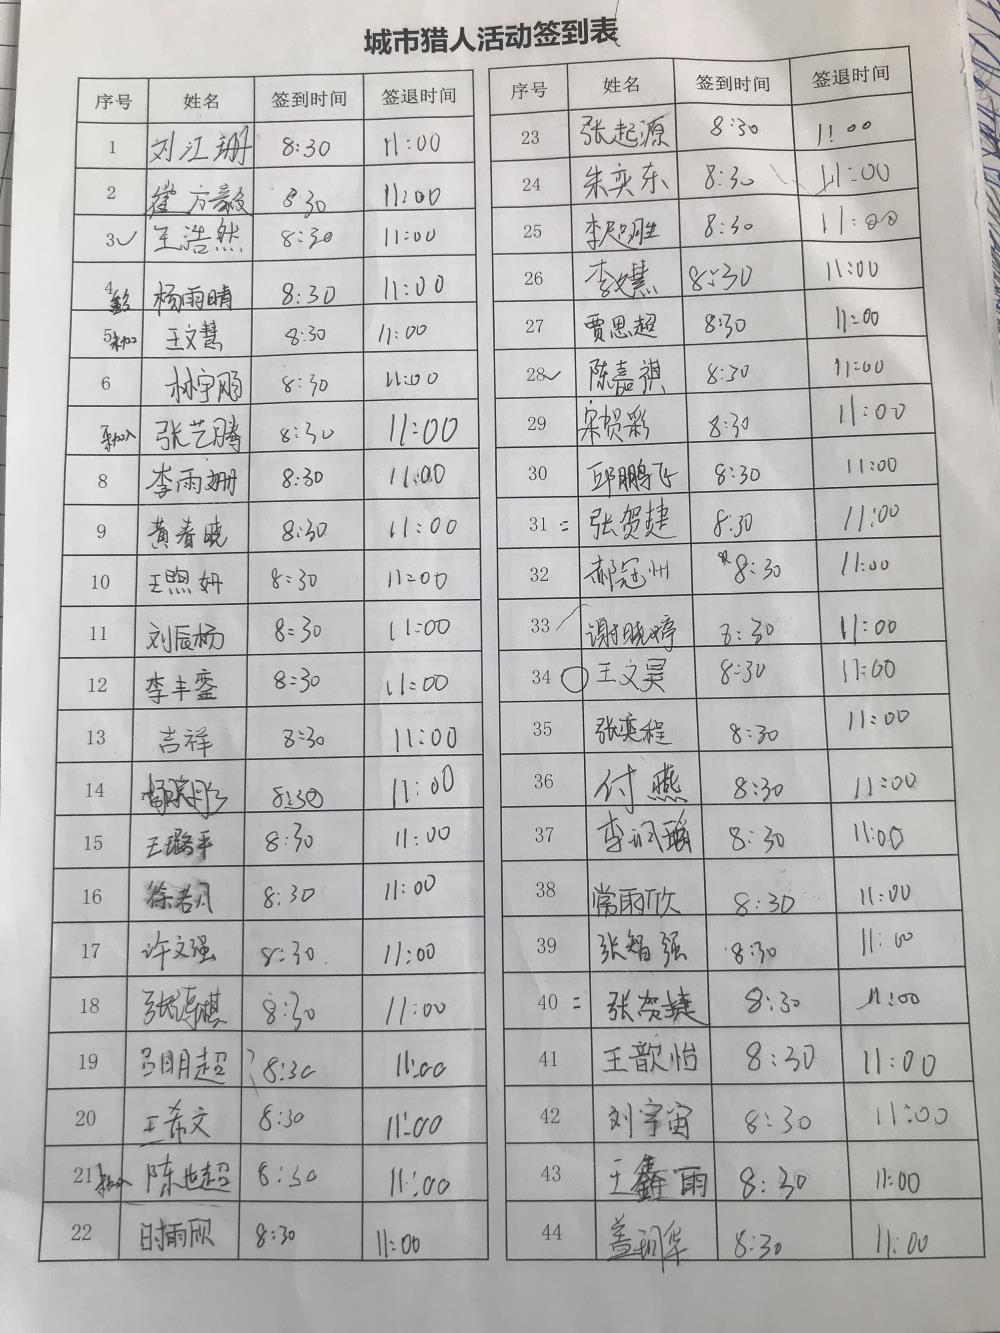 城市猎人活动签到表
序号 姓名 签到时间 签退时间
1 刘江珊 8:30 11:00
2 崔方毅 8:30 11:00
3✓ 王浩然 8:30 11:00
4 杨雨晴 8:30 11:00
5 未加入 王文慧 8:30 11:00
6 林宇鹏 8:30 11:00
未加入 张艺腾 8:30 11:00
8 李雨珊 8:30 11:00
9 黄春晓 8:30 11:00
10 王煕妍 8:30 11:00
11 刘辰杨 8:30 11:00
12 李丰銮 8:30 11:00
13 吉祥 8:30 11:00
14 8:30 11:00
15 王璐平 8:30 11:00
16 徐若凡 8:30 11:00
17 许文强 8:30 11:00
18 8:30 11:00
19 吕明超 8:30 11:00
20 王希文 8:30 11:00
21 未加入 陈世超 8:30 11:00
22 时雨欣 8:30 11:00
序号 姓名 签到时间 签退时间
23 张起源 8:30 11:00
24 朱奕东 8:30 11:00
25 8:30 11:00
26 李文慧 8:30 11:00
27 贾思超 8:30 11:00
28✓ 陈嘉祺 8:30 11:00
29 宋贺彩 8:30 11:00
30 邱鹏飞 8:30 11:00
31 = 张贺捷 8:30 11:00
32 郝冠州 8:30 11:00
33 谢晓婷 8:30 11:00
34 王文昊 8:30 11:00
35 张奕程 8:30 11:00
36 付燕 8:30 11:00
37 8:30 11:00
38 常雨欣 8:30 11:00
39 张智强 8:30 11:00
40 = 张贺捷 8:30 11:00
41 王歆怡 8:30 11:00
42 刘宇宙 8:30 11:00
43 王鑫雨 8:30 11:00
44 盖玥华 8:30 11:00